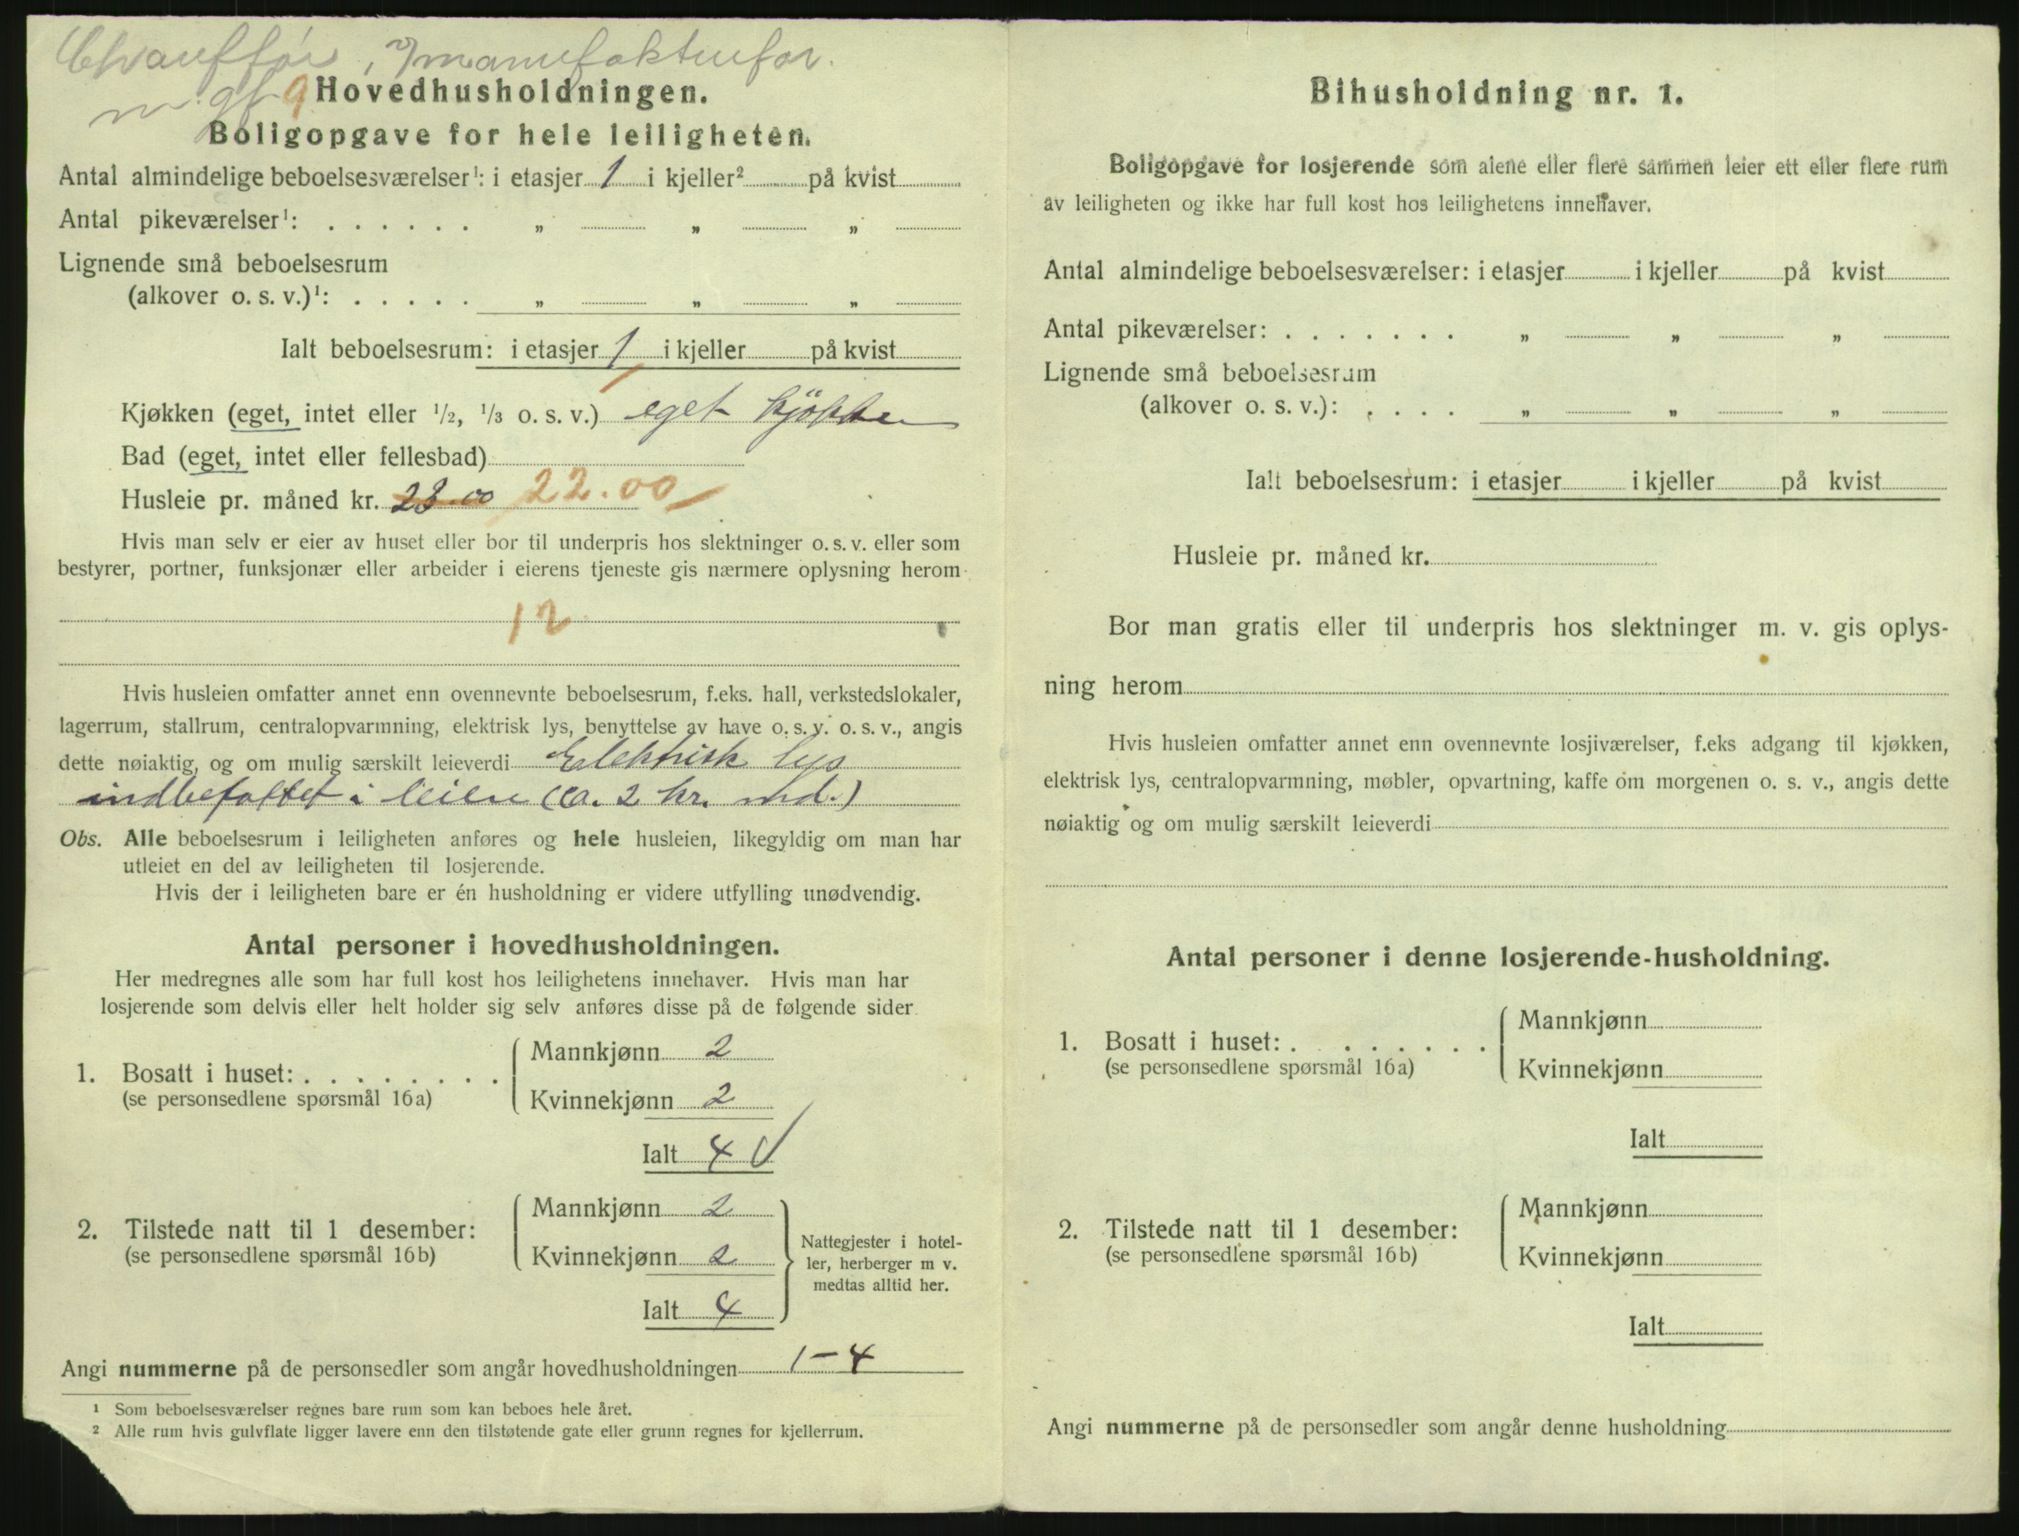 Chauffør i manufakturfor.
9 Hovedhusholdningen.
Boligopgave for hele leiligheten.
Antal almindelige beboelsesværelser¹: i etasjer 1 i kjeller² på kvist
Antal pikeværelser¹: . . . . . . „ „ „
Lignende små beboelsesrum
(alkover o. s. v.)¹: . . . . . „ „ „
Ialt beboelsesrum: i etasjer 1 i kjeller på kvist
Kjøkken (eget, intet eller 1/2, 1/3 o. s. v.) eget kjøkken
Bad (eget, intet eller fellesbad)
Husleie pr. måned kr. 23.00 22.00
Hvis man selv er eier av huset eller bor til underpris hos slektninger o. s. v. eller som
bestyrer, portner, funksjonær eller arbeider i eierens tjeneste gis nærmere oplysning herom
12
Hvis husleien omfatter annet enn ovennevnte beboelsesrum, f.eks. hall, verkstedslokaler,
lagerrum, stallrum, centralopvarmning, elektrisk lys, benyttelse av have o. s. v. o. s. v., angis
dette nøiaktig, og om mulig særskilt leieverdi Elektrisk lys
indbefattet i leien (ca. 2 kr. md.)
Obs. Alle beboelsesrum i leiligheten anføres og hele husleien, likegyldig om man har
utleiet en del av leiligheten til losjerende.
Hvis der i leiligheten bare er én husholdning er videre utfylling unødvendig.
Antal personer i hovedhusholdningen.
Her medregnes alle som har full kost hos leilighetens innehaver. Hvis man har
losjerende som delvis eller helt holder sig selv anføres disse på de følgende sider
Mannkjønn 2
1. Bosatt i huset: . . . . . . . .
(se personsedlene spørsmål 16a)
Kvinnekjønn 2
Ialt 4 √
Mannkjønn 2
2. Tilstede natt til 1 desember:
(se personsedlene spørsmål 16b)
Kvinnekjønn 2
Ialt 4
Nattegjester i hotel-
ler, herberger m v.
medtas alltid her.
Angi nummerne på de personsedler som angår hovedhusholdningen 1-4
¹ Som beboelsesværelser regnes bare rum som kan beboes hele året.
² Alle rum hvis gulvflate ligger lavere enn den tilstøtende gate eller grunn regnes for kjellerrum.
Bihusholdning nr. 1.
Boligopgave for losjerende som alene eller flere sammen leier ett eller flere rum
av leiligheten og ikke har full kost hos leilighetens innehaver.
Antal almindelige beboelsesværelser: i etasjer i kjeller på kvist
Antal pikeværelser: . . . . . . . „ „ „
Lignende små beboelsesrum
(alkover o. s. v.): . . . . „ „ „
Ialt beboelsesrum: i etasjer i kjeller på kvist
Husleie pr. måned kr.
Bor man gratis eller til underpris hos slektninger m. v. gis oplys-
ning herom
Hvis husleien omfatter annet enn ovennevnte losjiværelser, f.eks adgang til kjøkken,
elektrisk lys, centralopvarmning, møbler, opvartning, kaffe om morgenen o. s. v., angis dette
nøiaktig og om mulig særskilt leieverdi
Antal personer i denne losjerende-husholdning.
Mannkjønn
1. Bosatt i huset: . . . . . . . .
(se personsedlene spørsmål 16a)
Kvinnekjønn
Ialt
Mannkjønn
2. Tilstede natt til 1 desember:
(se personsedlene spørsmål 16b)
Kvinnekjønn
Ialt
Angi nummerne på de personsedler som angår denne husholdning